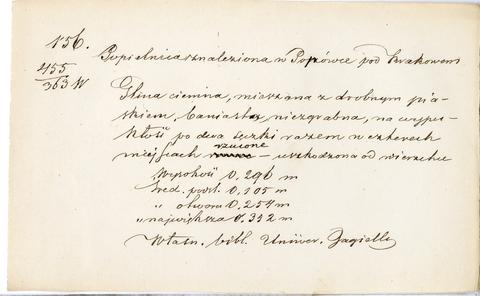 156.
455
363 W
Popielnica znaleziona w Popówce pod Krakowem
Glina ciemna, mieszana z drobnym pia-
skiem, baniasta, niezgrabna, na wypu-
kłości po dwa sęczki razem w czterech
rzucone
miejscach — uszkodzona od wierzchu
Wysokość 0,296 m
Śred. podst. 0,105 m
" otworu 0,254 m
" największa 0,332 m
Własn. bibl. Uniwer. Jagiell.